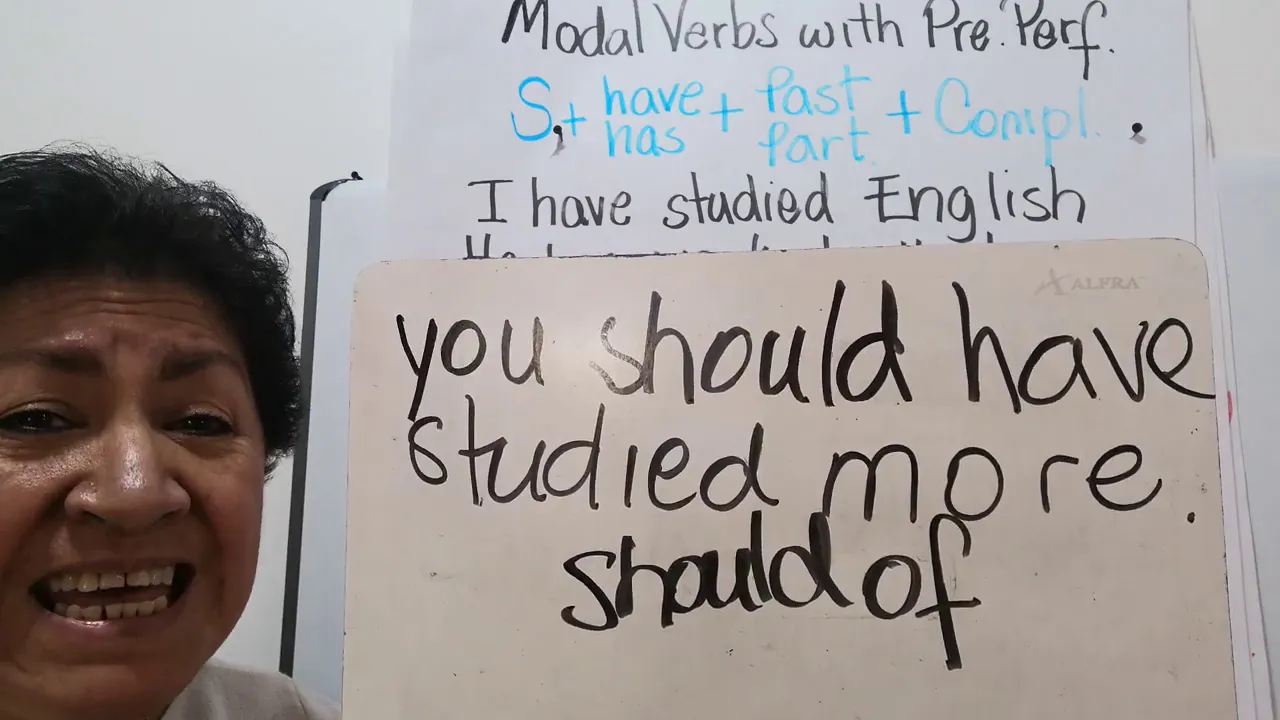 Modal Verbs with Pre. Perf.
S + have has + Past Part. + Compl.
I have studied English
ALFRA
you should have
studied more.
should of